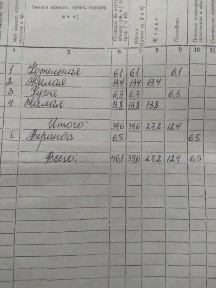 (жилая комната, кухня, коридор
и т. п.)
5 6 7 8 9 10 11
1 Котельная 6,1 6,1 6,1
2 Жилая 13,4 13,4 13,4
3 Кухня 6,3 6,3 6,3
4 Жилая 13,8 13,8 13,8
Итого: 39,6 39,6 27,2 12,4
1 Веранда 6,5 6,5
Всего: 46,1 39,6 27,2 12,4 6,5